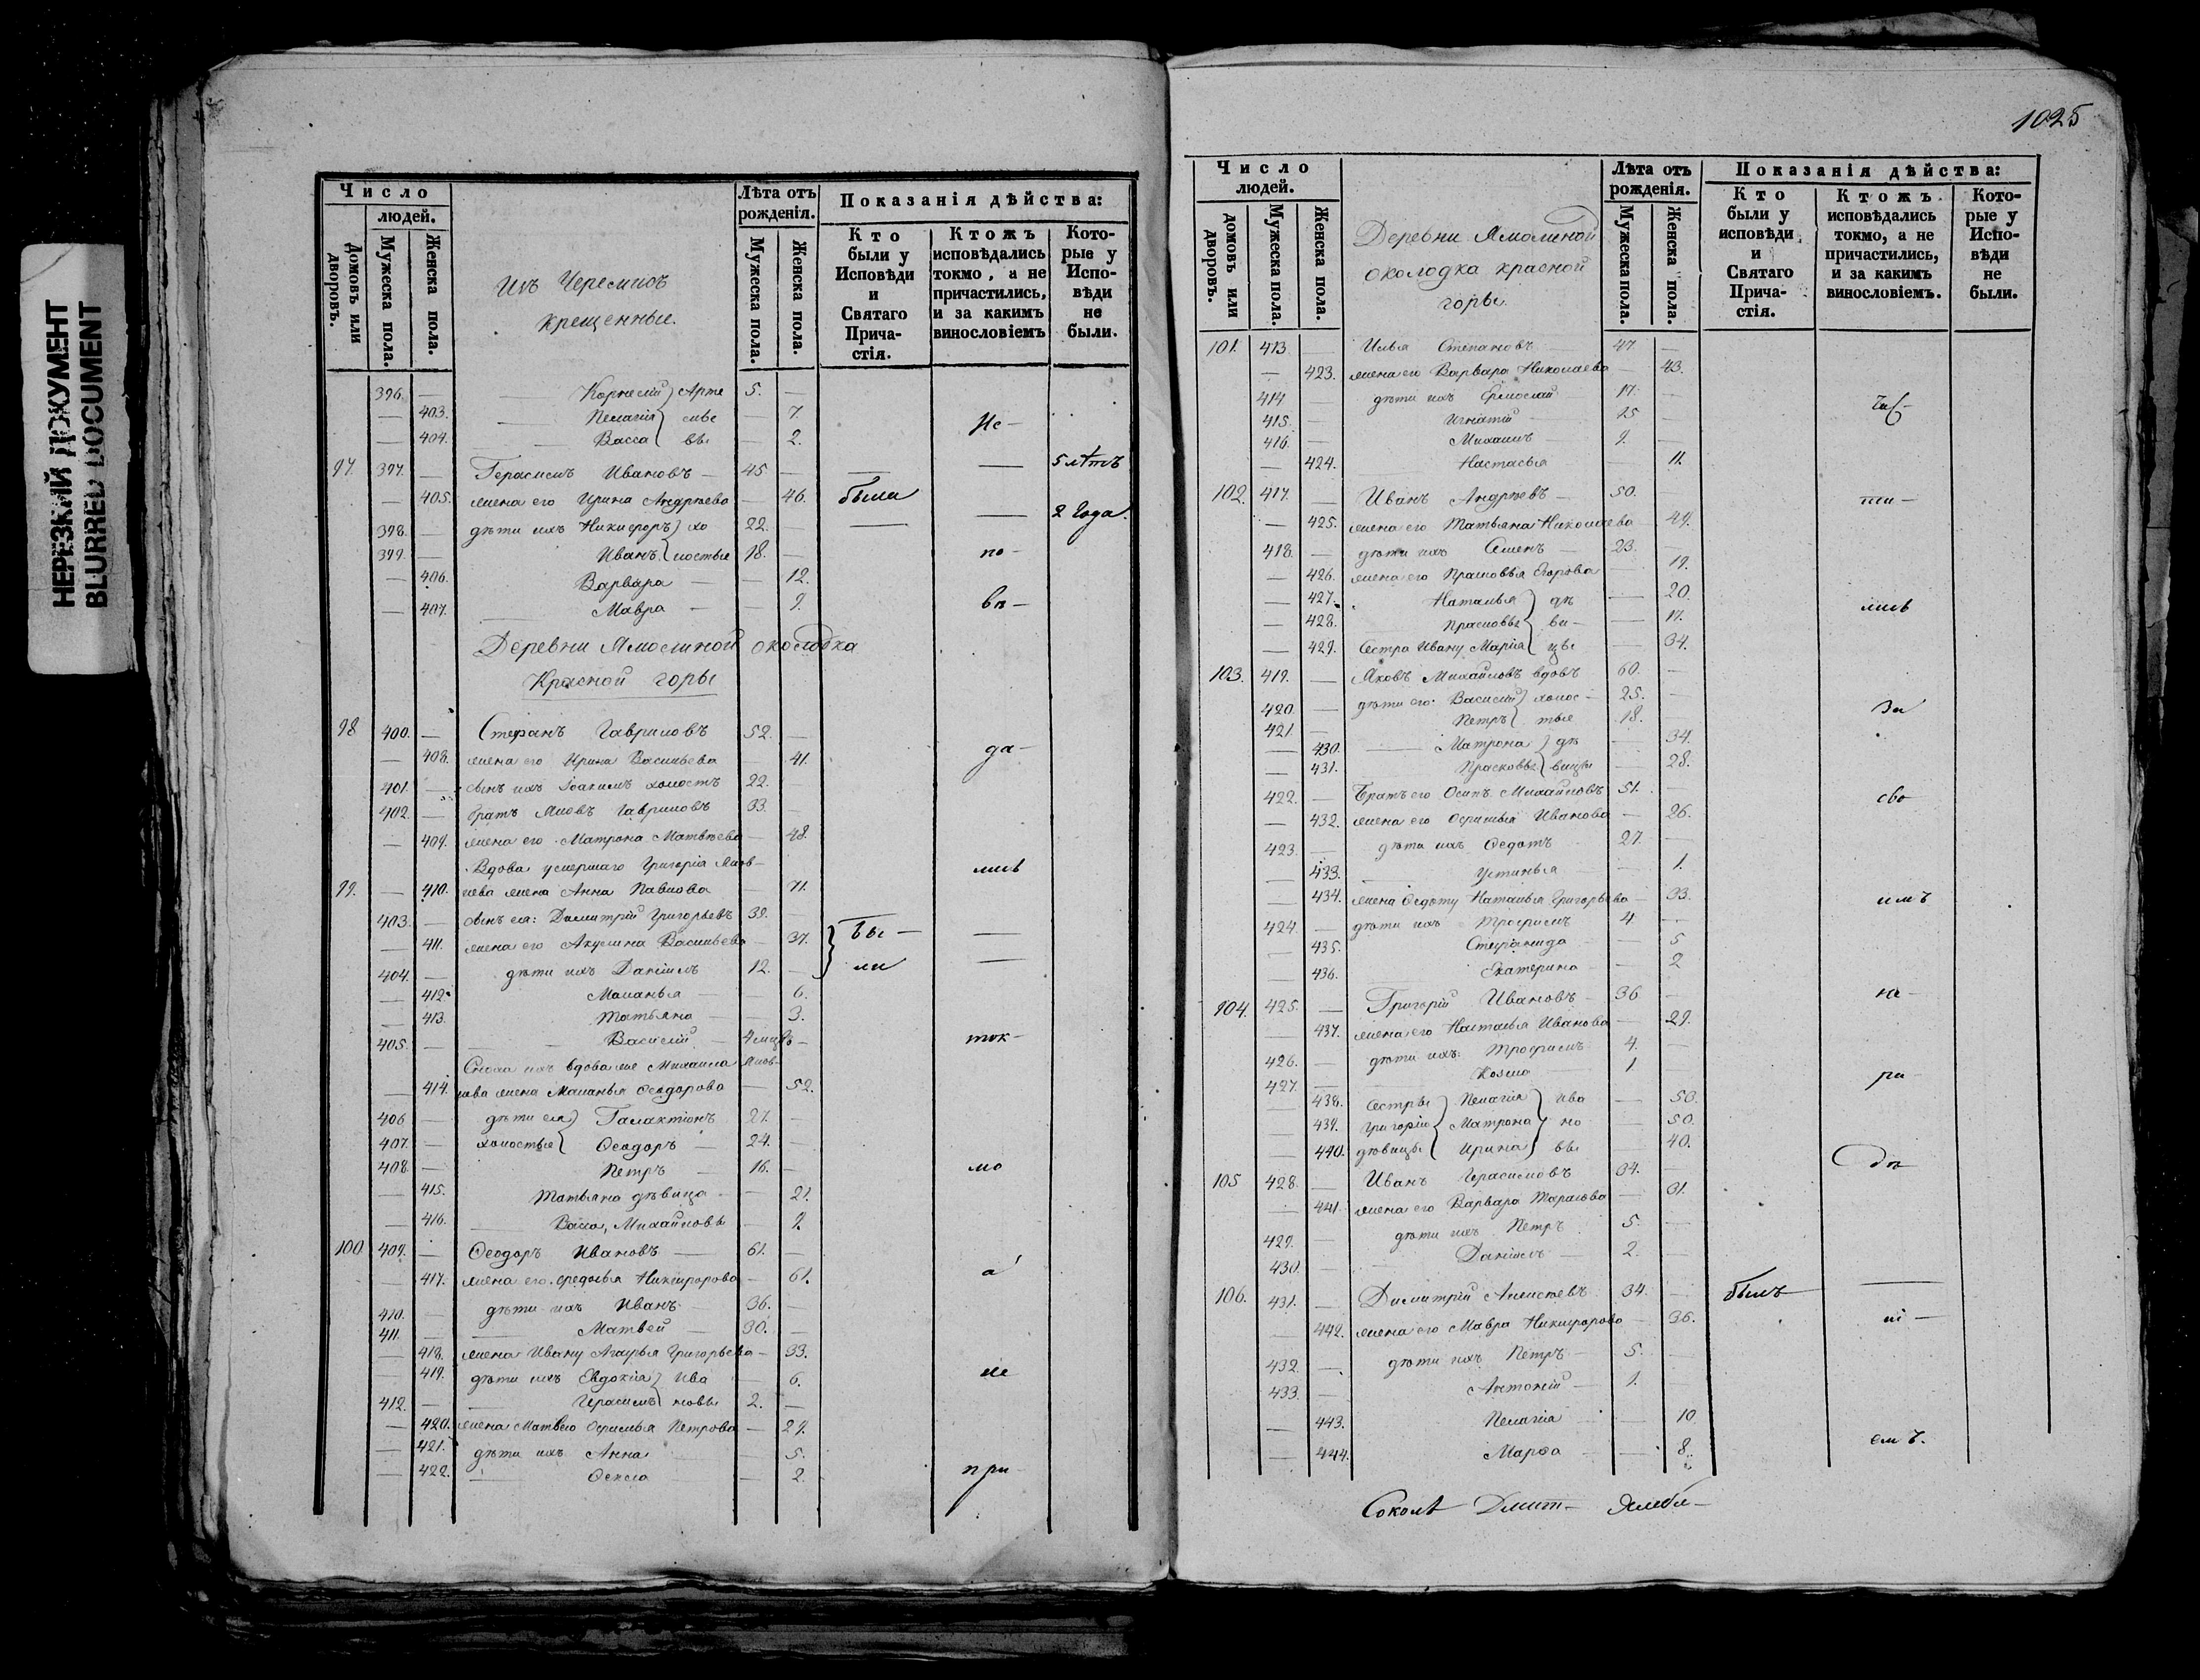 НЕРЕЗКИЙ ДОКУМЕНТ
BLURRED DOCUMENT
Число
людей.
Домовъ или дворовъ.
Мужеска пола.
Женска пола.
Изъ Черемисъ
крещенные.
Лѣта отъ рожденія.
Мужеска пола.
Женска пола.
Показанія дѣйства:
Кто были у Исповѣди и Святаго Прича-стія.
Ктожъ исповѣдались токмо, а не причастились, и за какимъ винословіемъ
Кото-рые у Испо-вѣди не были.
396. — Корнелій } Арте 5. —
— 403. Пелагія } мье — 7. Не —
— 404. Васса } вы — 2.
97. 397. — Герасимъ Ивановъ — 45 — — — 5 лѣтъ
— 405. жена его Ирина Андрѣева — 46. была
398. — дѣти ихъ Никифоръ } хо 22. — — 2 года.
399. — Иванъ { лостые 18. — по —
— 406. Варвара — — 12.
— 407. Мавра — — 9. вѣ —
Деревни Ямолиной околодка
Красной горы
98 400. — Стефанъ Гавриловъ 52. —
— 408. жена его Ирина Васильева — 41. да —
401. — сынъ ихъ Іоакимъ холостъ 22. —
402. — братъ Яковъ Гавриловъ 33. —
— 409. жена его Матрона Матвѣева — 48.
Вдова умершаго Григорія Яков-
99. — 410. лева жена Анна Павлова — 71. лись
403. — сынъ ея: Димитрій Григорьевъ 39. —
— 411. жена его Акулина Васильева — 37. } Бы — —
404. — дѣти ихъ Даніилъ 12. — ли —
— 412. Маланья — — 6.
— 413. Татьяна — — 3.
405. — Василій — 4 мцѣ — ток —
Сноха ихъ вдова же Михаила Яков-
— 414. лева жена Маланья Ѳеодорова — 52.
406 — дѣти ея } Галактіонъ 27. —
407. — холостые { Ѳеодоръ — 24. —
408. — Петръ — 16. — мо
— 415. Татьяна дѣвица — — 21.
— 416. Васса, Михайловы — 9.
100 409. — Ѳеодоръ Ивановъ — 61. —
— 417. жена его Ѳедосья Никифорова — 61. а
410. — дѣти ихъ Иванъ 36. —
411. — Матвей — 30. —
— 418. жена Ивану Агафья Григорьева — 33.
— 419. дѣти ихъ Евдокія } Ива — 6. не
412. — Герасимъ { новы 2. —
— 420. жена Матвею Ѳфимья Петрова — 29.
— 421. дѣти ихъ Анна — 5.
— 422. Ѳекла — 2. при
1025
Число
людей.
домовъ или дворовъ.
Мужеска пола.
Женска пола.
Деревни Ямолиной
околодка красной
горы.
Лѣта отъ рожденія.
Мужеска пола.
Женска пола.
Показанія дѣйства:
Кто были у исповѣди и Святаго Прича-стія.
Ктожъ исповѣдались токмо, а не причастились, и за какимъ винословіемъ.
Кото-рые у Испо-вѣди не были.
101. 413 — Илья Степановъ 47 —
— 423. жена его Варвара Николаева — 43.
414 дѣти ихъ Ермолай 17. — час —
415. — Игнатій 15 —
416. — Михаилъ — 9. —
— 424. Настасья — 11.
102. 417. — Иванъ Андрѣевъ — 50. ти —
— 425. жена его Татьяна Николаева 49.
418. — дѣти ихъ Семенъ — 23. —
— 426. жена его Прасковья Егорова — 19.
— 427. Наталья } дѣ — 20. лись
— 428. Прасковья } ви — — 17.
— 429. Сестра Ивану Марія { цы — 34.
103. 419. — Яковъ Михайловъ вдовъ 60. —
420. — дѣти его: Василій } холос — 25. — За
421. — Петръ { тые 18. —
— 430. Матрона } дѣ — 34.
— 431. Прасковья { вицы — 28.
422. — Братъ его Осипъ Михайловъ 51. — сво
— 432. жена его Ѳфимья Иванова — 26.
423. — дѣти ихъ Ѳедотъ 27. —
— 433. Устинья — — 1.
— 434. жена Ѳедоту Наталья Григорьева — 33. имъ
424. — дѣти ихъ Трофимъ 4. —
— 435. Стефанида — — 5
— 436. Екатерина — — 2
104. 425. — Григорій Ивановъ — 36 — не —
— 437. жена его Наталья Иванова — 29.
426. — дѣти ихъ: Трофимъ 4. —
427. — Козма 1 — ра —
— 438. сестры } Пелагія } Ива — 50.
— 439. Григорію { Матрона } но — 50.
— 440. дѣвицы { Ирина } вы — 40.
105 428 — Иванъ Герасимовъ 34. — дѣ
— 441. жена его Варвара Тарасова — 31.
429. — дѣти ихъ Петръ 5. —
430. — Даніилъ — 2. —
106. 431. — Димитрій Алексѣевъ 34. — былъ —
— 442. жена его Мавра Никифорова — 36. ні —
432. — дѣти ихъ Петръ — 5. —
433. — Антоній — 1. —
— 443. Пелагія — — 10
— 444. Марѳа — — 8. емъ.
Соколѣ Дмит —